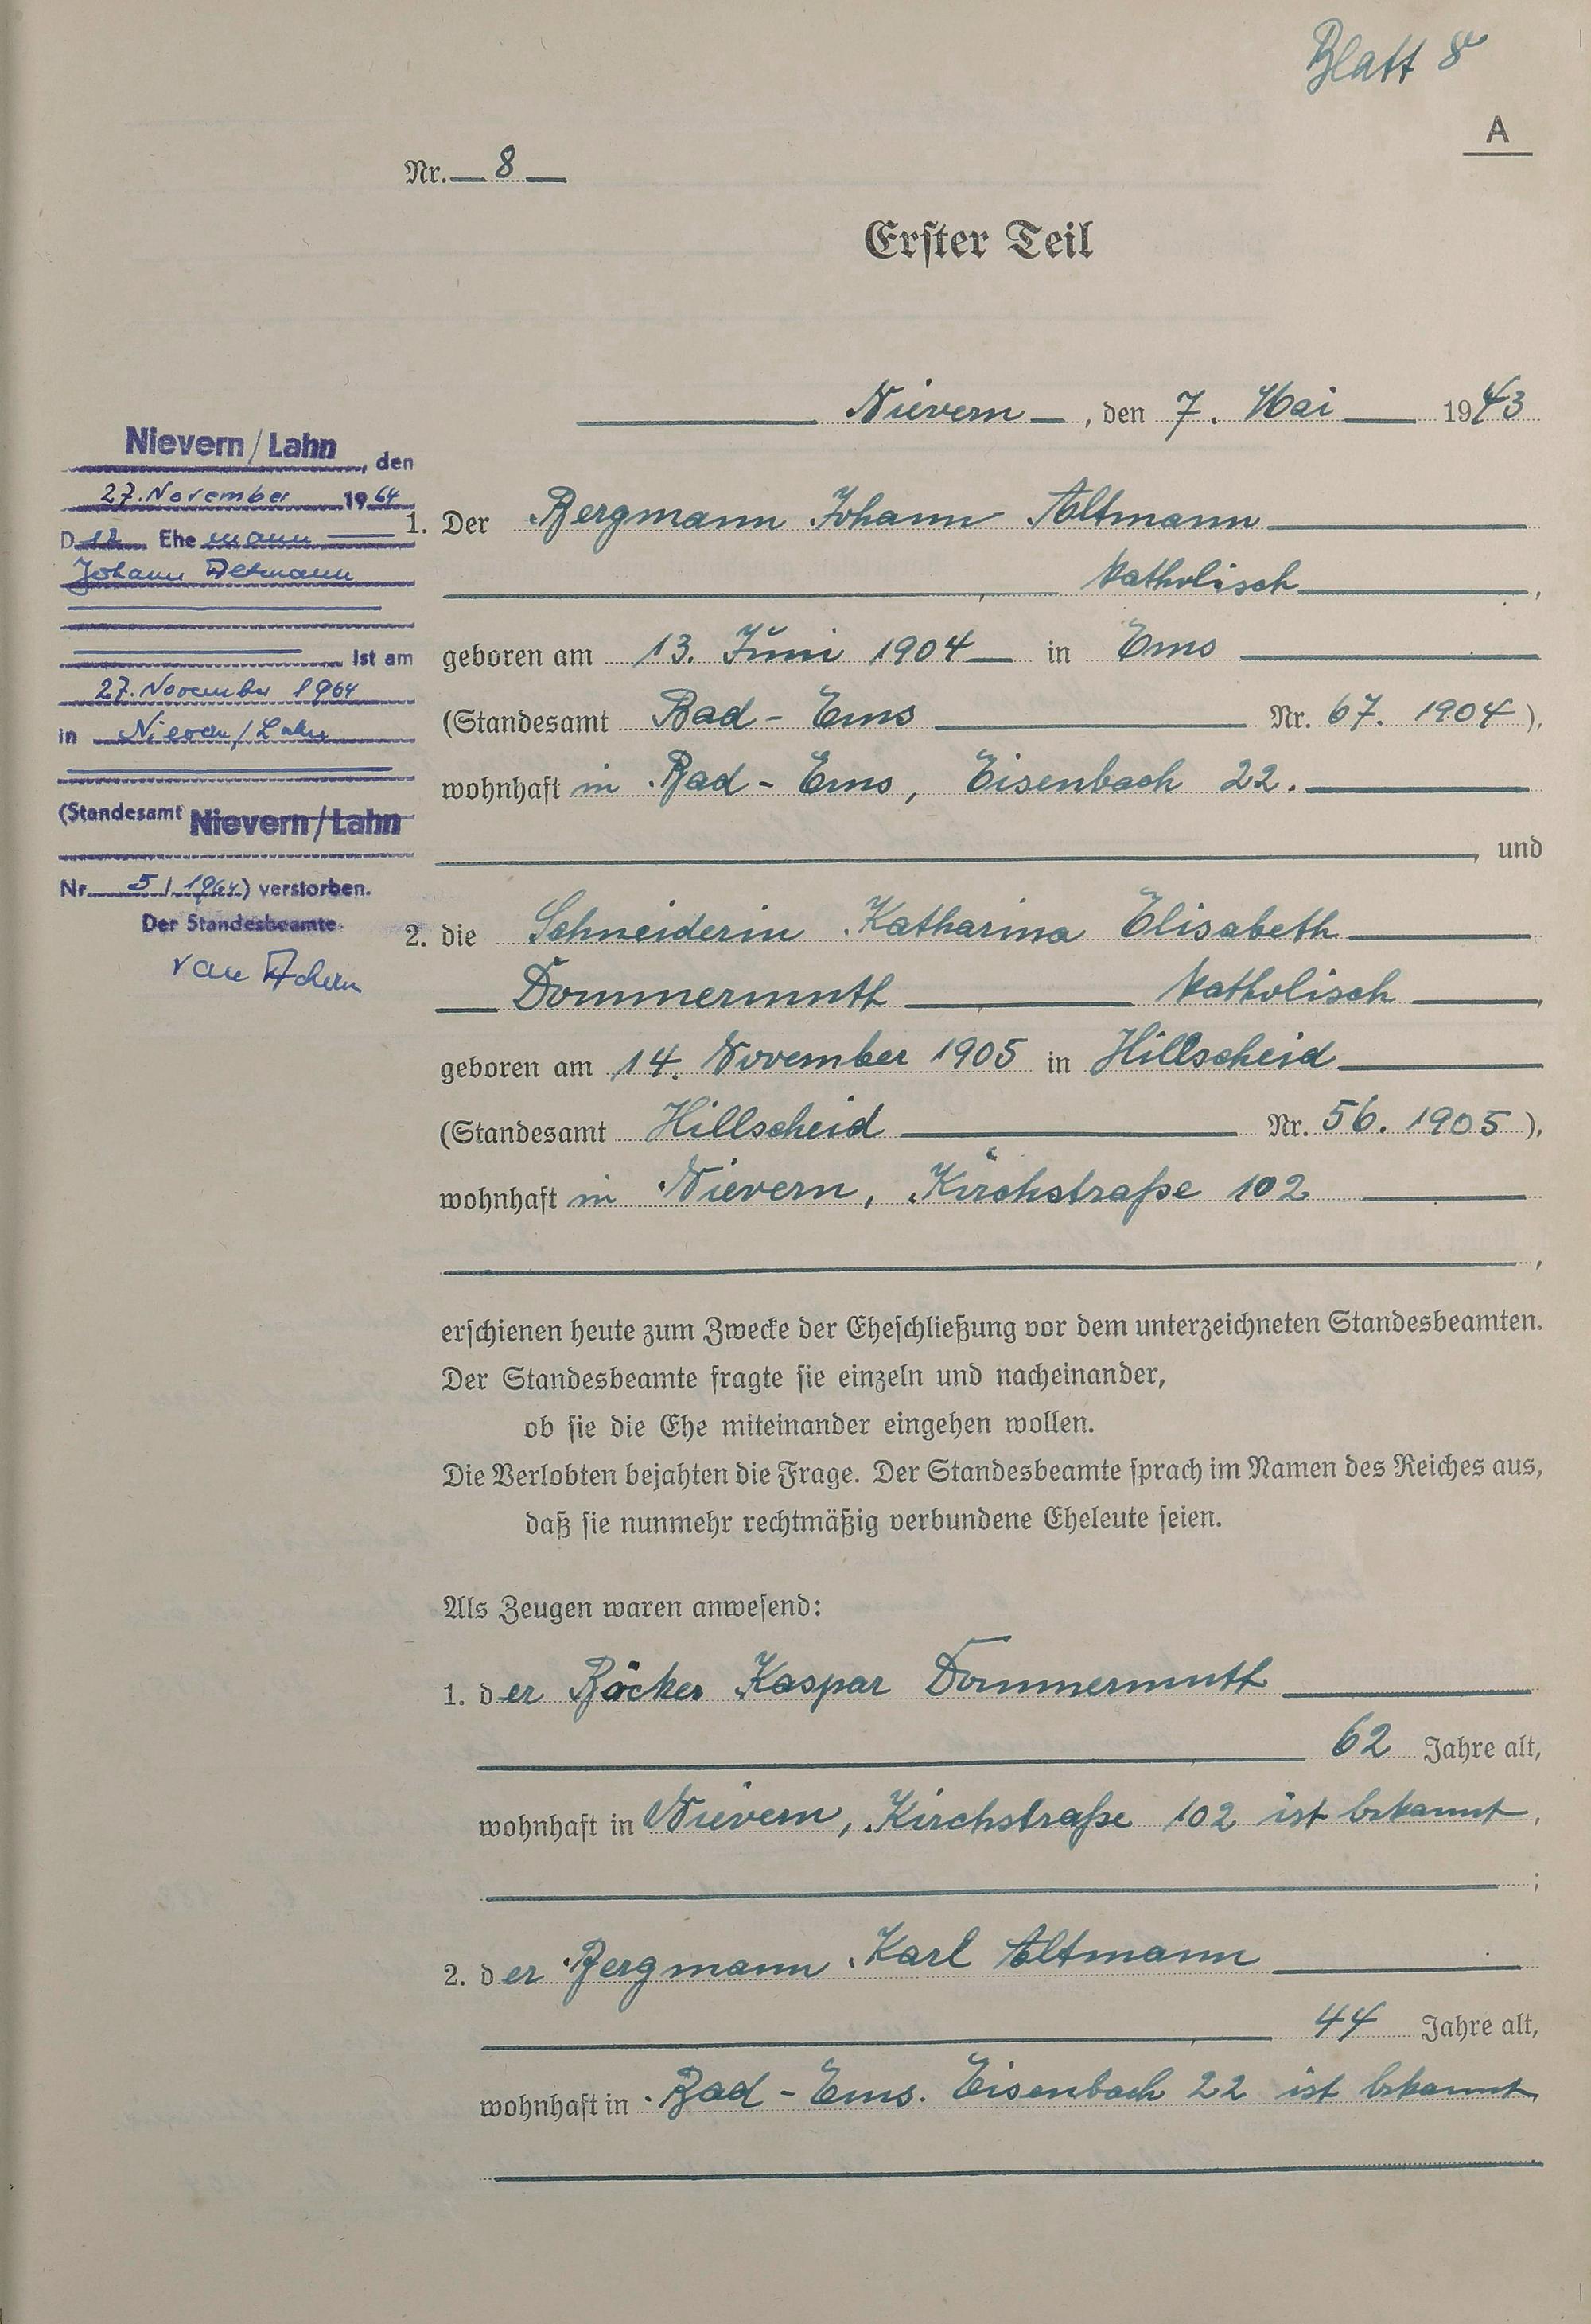 Blatt 8
A
Nr. 8
Erster Teil
Nievern, den 7. Mai 1943
Nievern/Lahn, den
27. November 1964
D 12 Ehe mann
Johann Altmann
ist am
27. November 1964
in Nievern/Lahn
(Standesamt Nievern/Lahn
Nr. 5/1964) verstorben.
Der Standesbeamte
van Achern
1. Der Bergmann Johann Altmann
katholisch,
geboren am 13. Juni 1904 in Ems
(Standesamt Bad-Ems Nr. 67. 1904),
wohnhaft in Bad-Ems, Eisenbach 22.
, und
2. die Schneiderin Katharina Elisabeth
Dommermuth katholisch,
geboren am 14. November 1905 in Hillscheid
(Standesamt Hillscheid Nr. 56. 1905),
wohnhaft in Nievern, Kirchstraße 102
,
erschienen heute zum Zwecke der Eheschließung vor dem unterzeichneten Standesbeamten.
Der Standesbeamte fragte sie einzeln und nacheinander,
ob sie die Ehe miteinander eingehen wollen.
Die Verlobten bejahten die Frage. Der Standesbeamte sprach im Namen des Reiches aus,
daß sie nunmehr rechtmäßig verbundene Eheleute seien.
Als Zeugen waren anwesend:
1. der Bäcker Kaspar Dommermuth
62 Jahre alt,
wohnhaft in Nievern, Kirchstraße 102 ist bekannt,
;
2. der Bergmann Karl Altmann
44 Jahre alt,
wohnhaft in Bad-Ems. Eisenbach 22 ist bekannt,